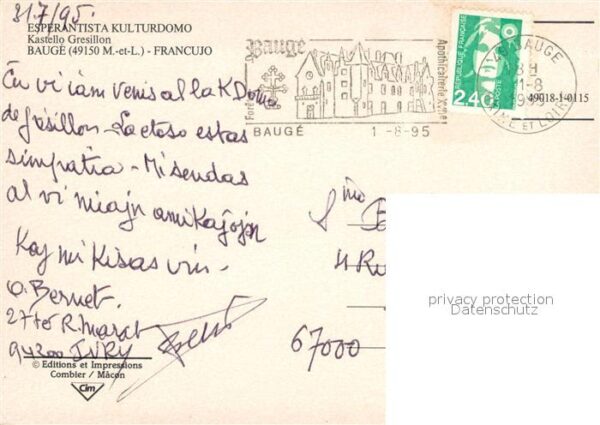 31/7/95.
ESPERANTISTA KULTURDOMO
Kastello Gresillon
BAUGÉ (49150 M.-et-L.) - FRANCUJO
Ĉu vi iam venis al la K. Domo
de Grésillon - Lactoso estas
simpatia - Mi sendas
al vi miajn amikaĵojn
Kaj mi kisas vin -
Bernet.
27 R. Marat
94200 IVRY
© Editions et Impressions
Combier / Mâcon
Cim
Baugé
Apothicairerie
BAUGÉ
1-8-95
REPUBLIQUE FRANÇAISE
LA POSTE
2,40
49 BAUGE
8H
1-8
1995
MAINE ET LOIRE
49018-1-0115
4 Ru
67000
privacy protection
Datenschutz